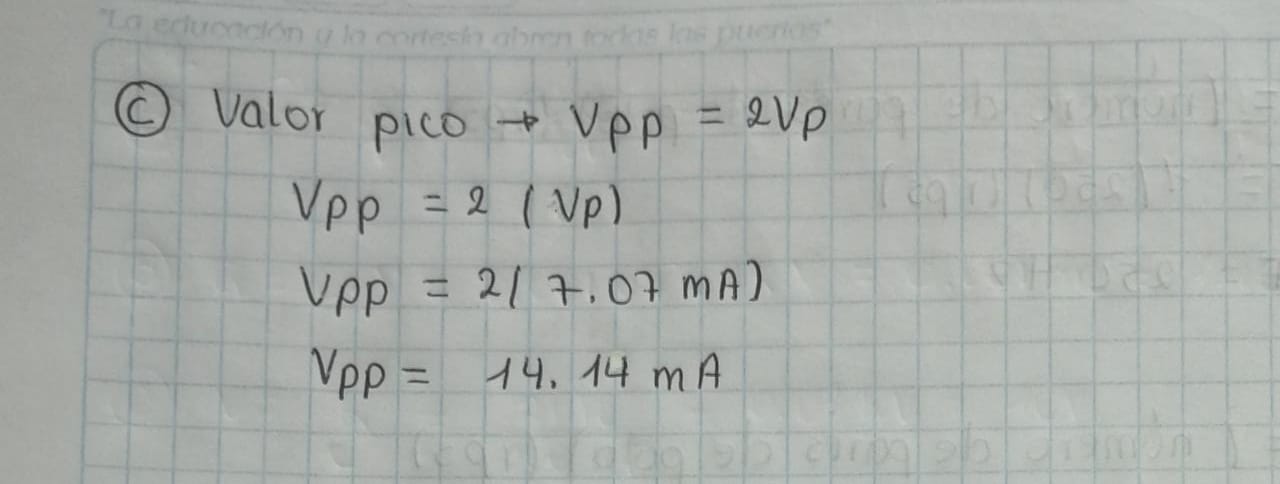 "La educación y la cortesía abren todas las puertas"
Ⓒ Valor pico → Vpp = 2Vp
Vpp = 2 (Vp)
Vpp = 2( 7.07 mA)
Vpp = 14.14 mA